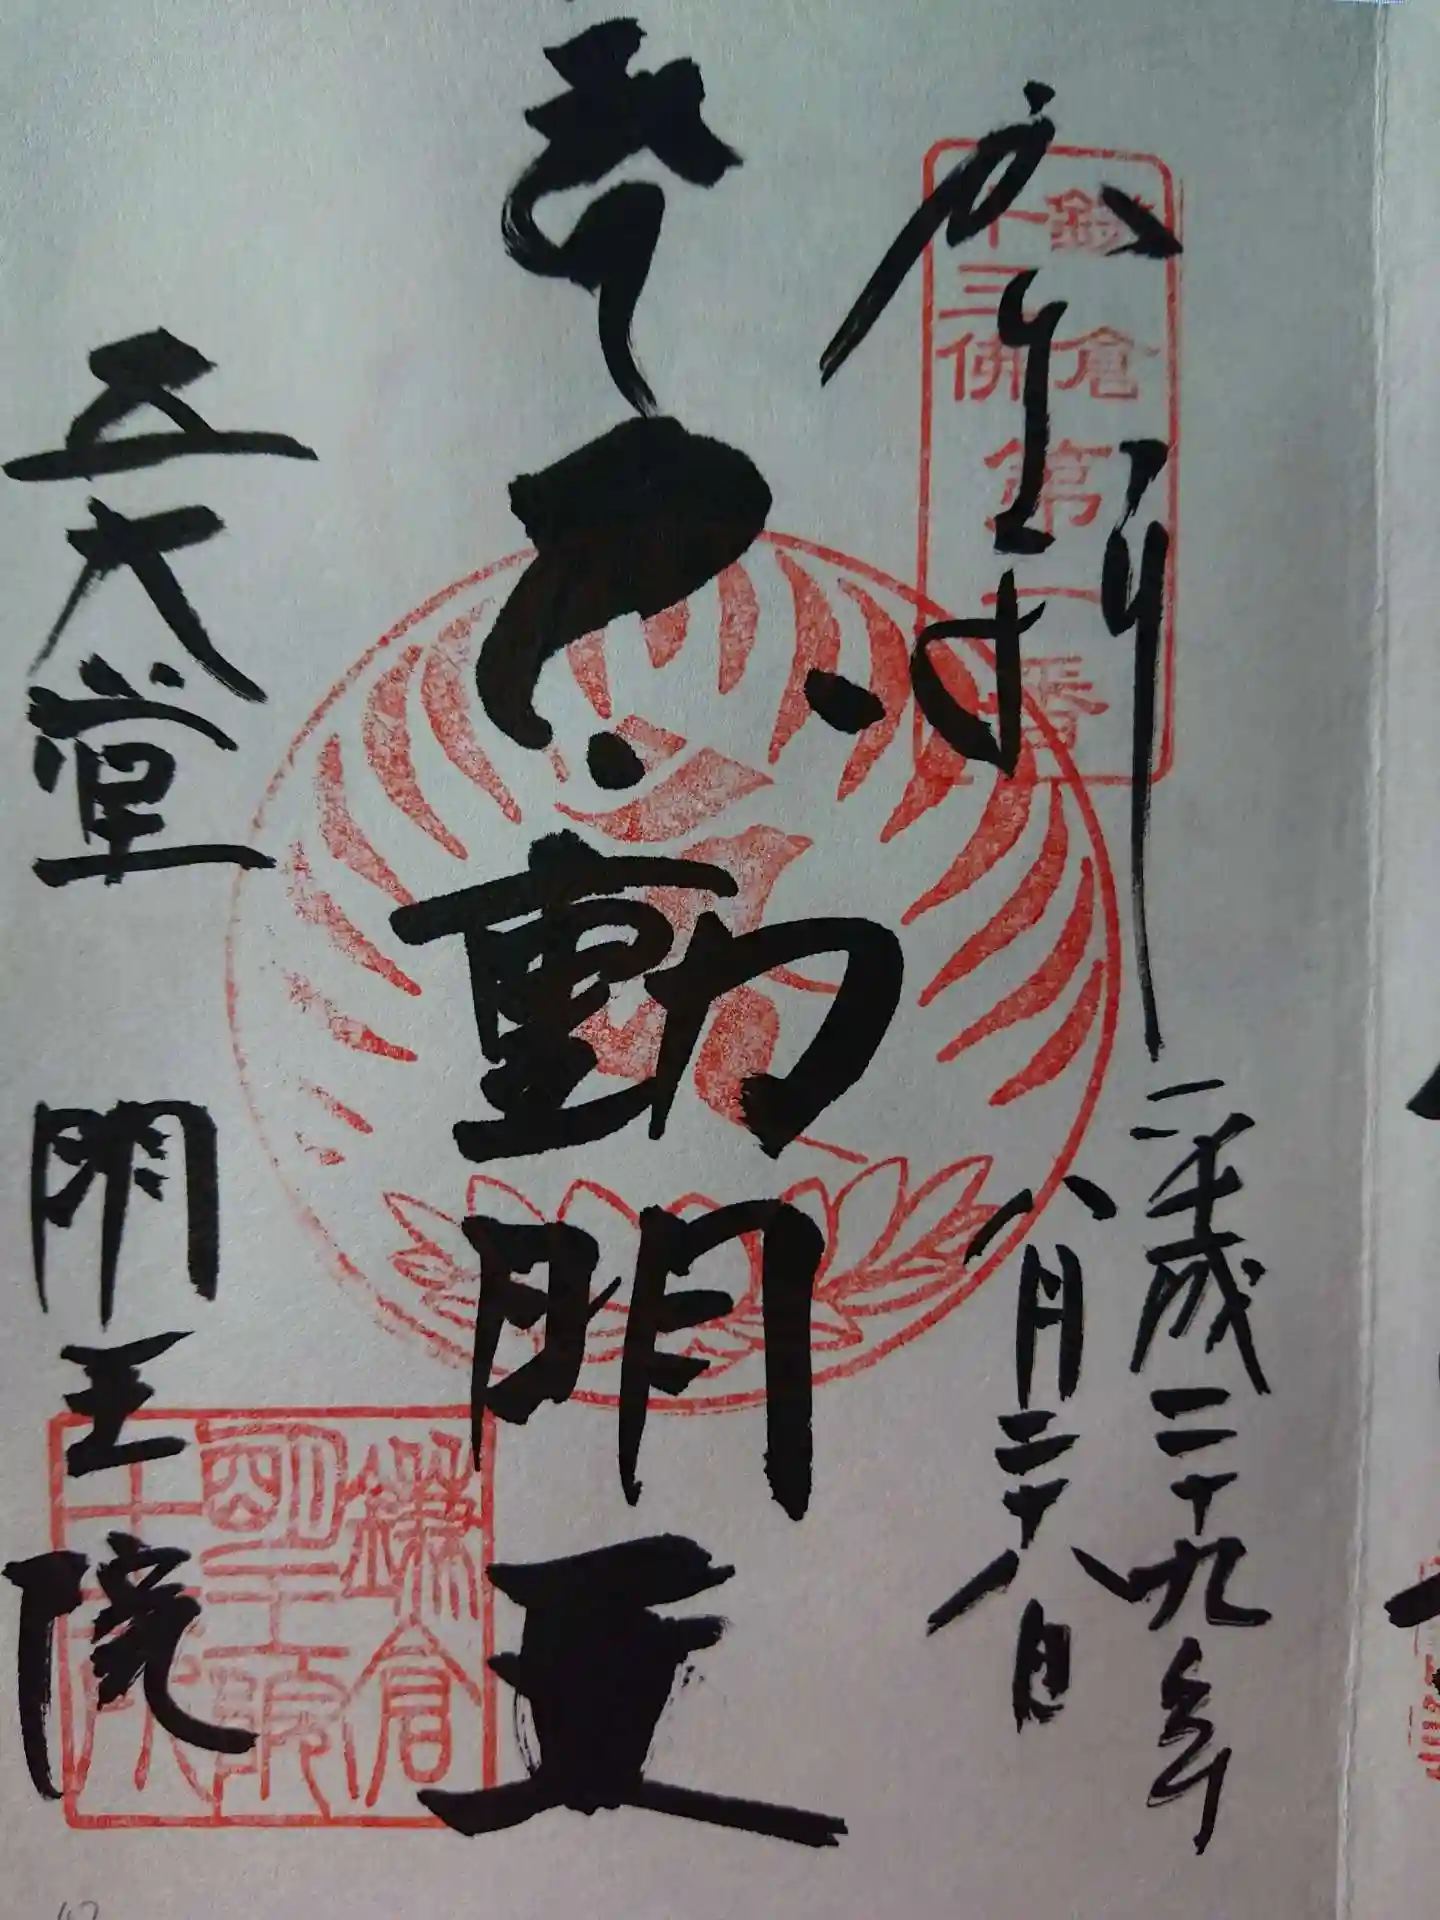 鎌倉
十三佛
第一番
平成二十九年
八月二十八日
不動明王
五大堂 明王院
鎌倉
明王院